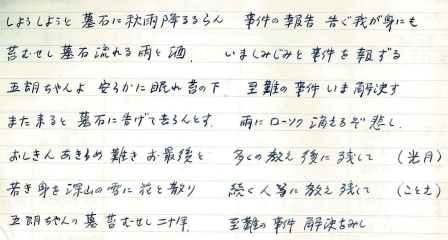 しょうしょうと 墓石に秋雨降るらん 事件の報告 告ぐ我が身にも
苔むせし 墓石流れる 雨と酒、 いましみじみと 事件を報ずる
五朗ちゃんよ 安らかに眠れ 苔の下 至難の事件 いま解決す
また来ると 墓石に告げて去らんとす、 雨にローソク 消えるぞ悲し、
おしきん あきらめ 難き お最後と 多くの教え 後に残して (光月)
若き身を 深山の雪に 花と散り 続く人等に 教え残して (ことえ)
五朗ちゃんの 墓 苔むせし 二十年 至難の事件 解決なみし